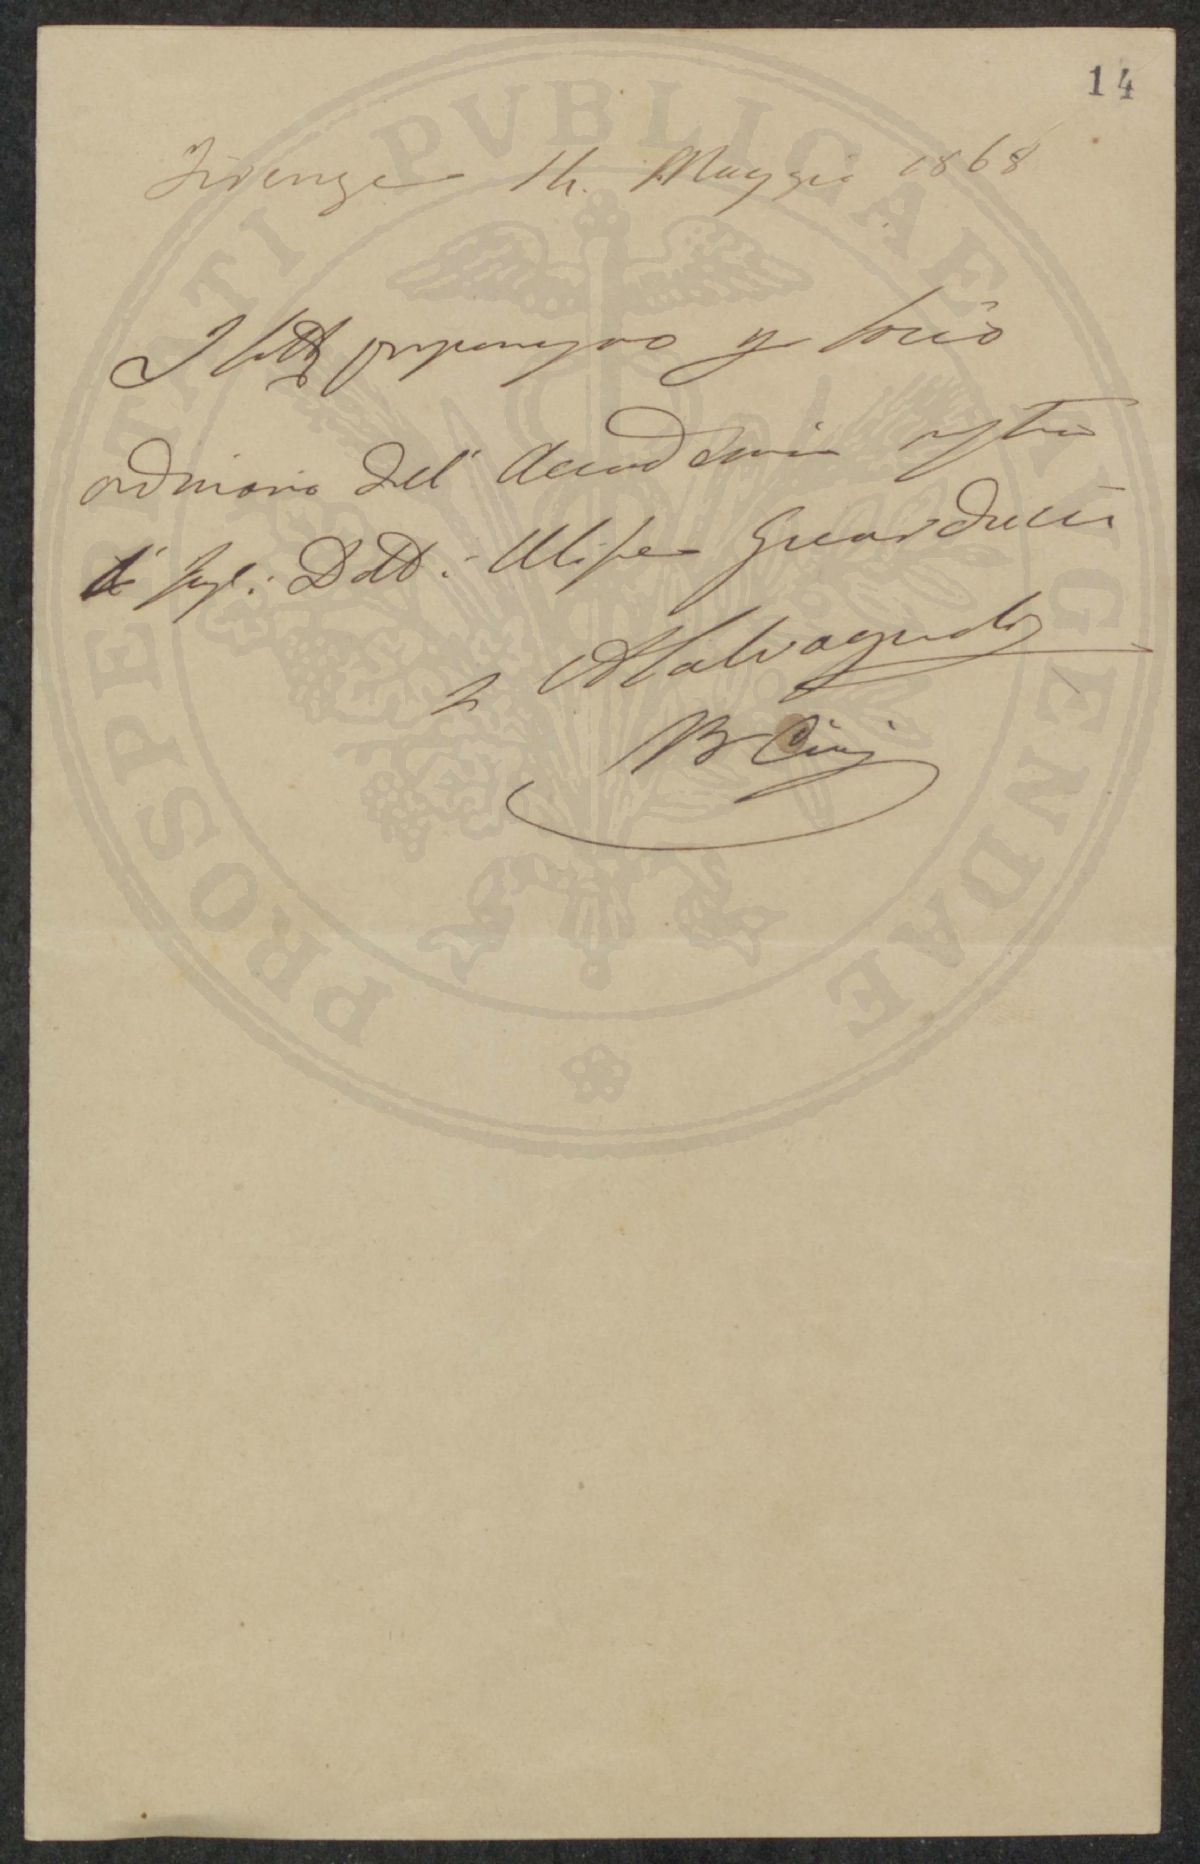 14
Firenze 14. Maggio 1868
I sott propongono p socio
ordinario dell' Accademia nostra
il Sigr: Dott: Ulisse Guarducci
A Salvagnoli
B Cini
PROSPERITATI PVBLICAE AVGENDAE